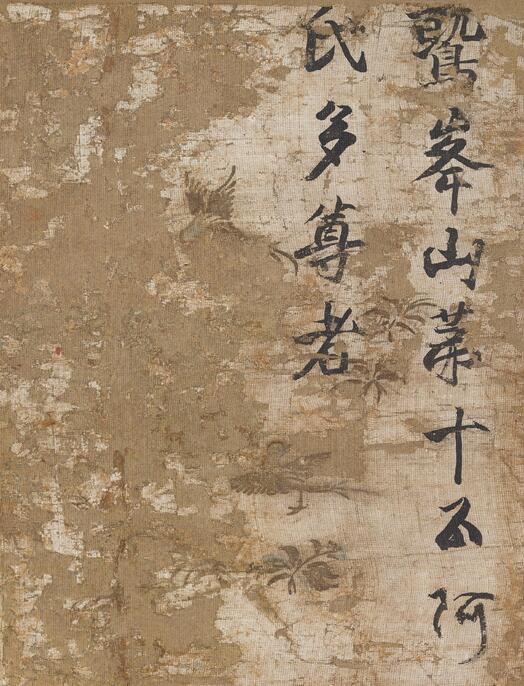 鷲峯山苐十五阿
氏多尊者